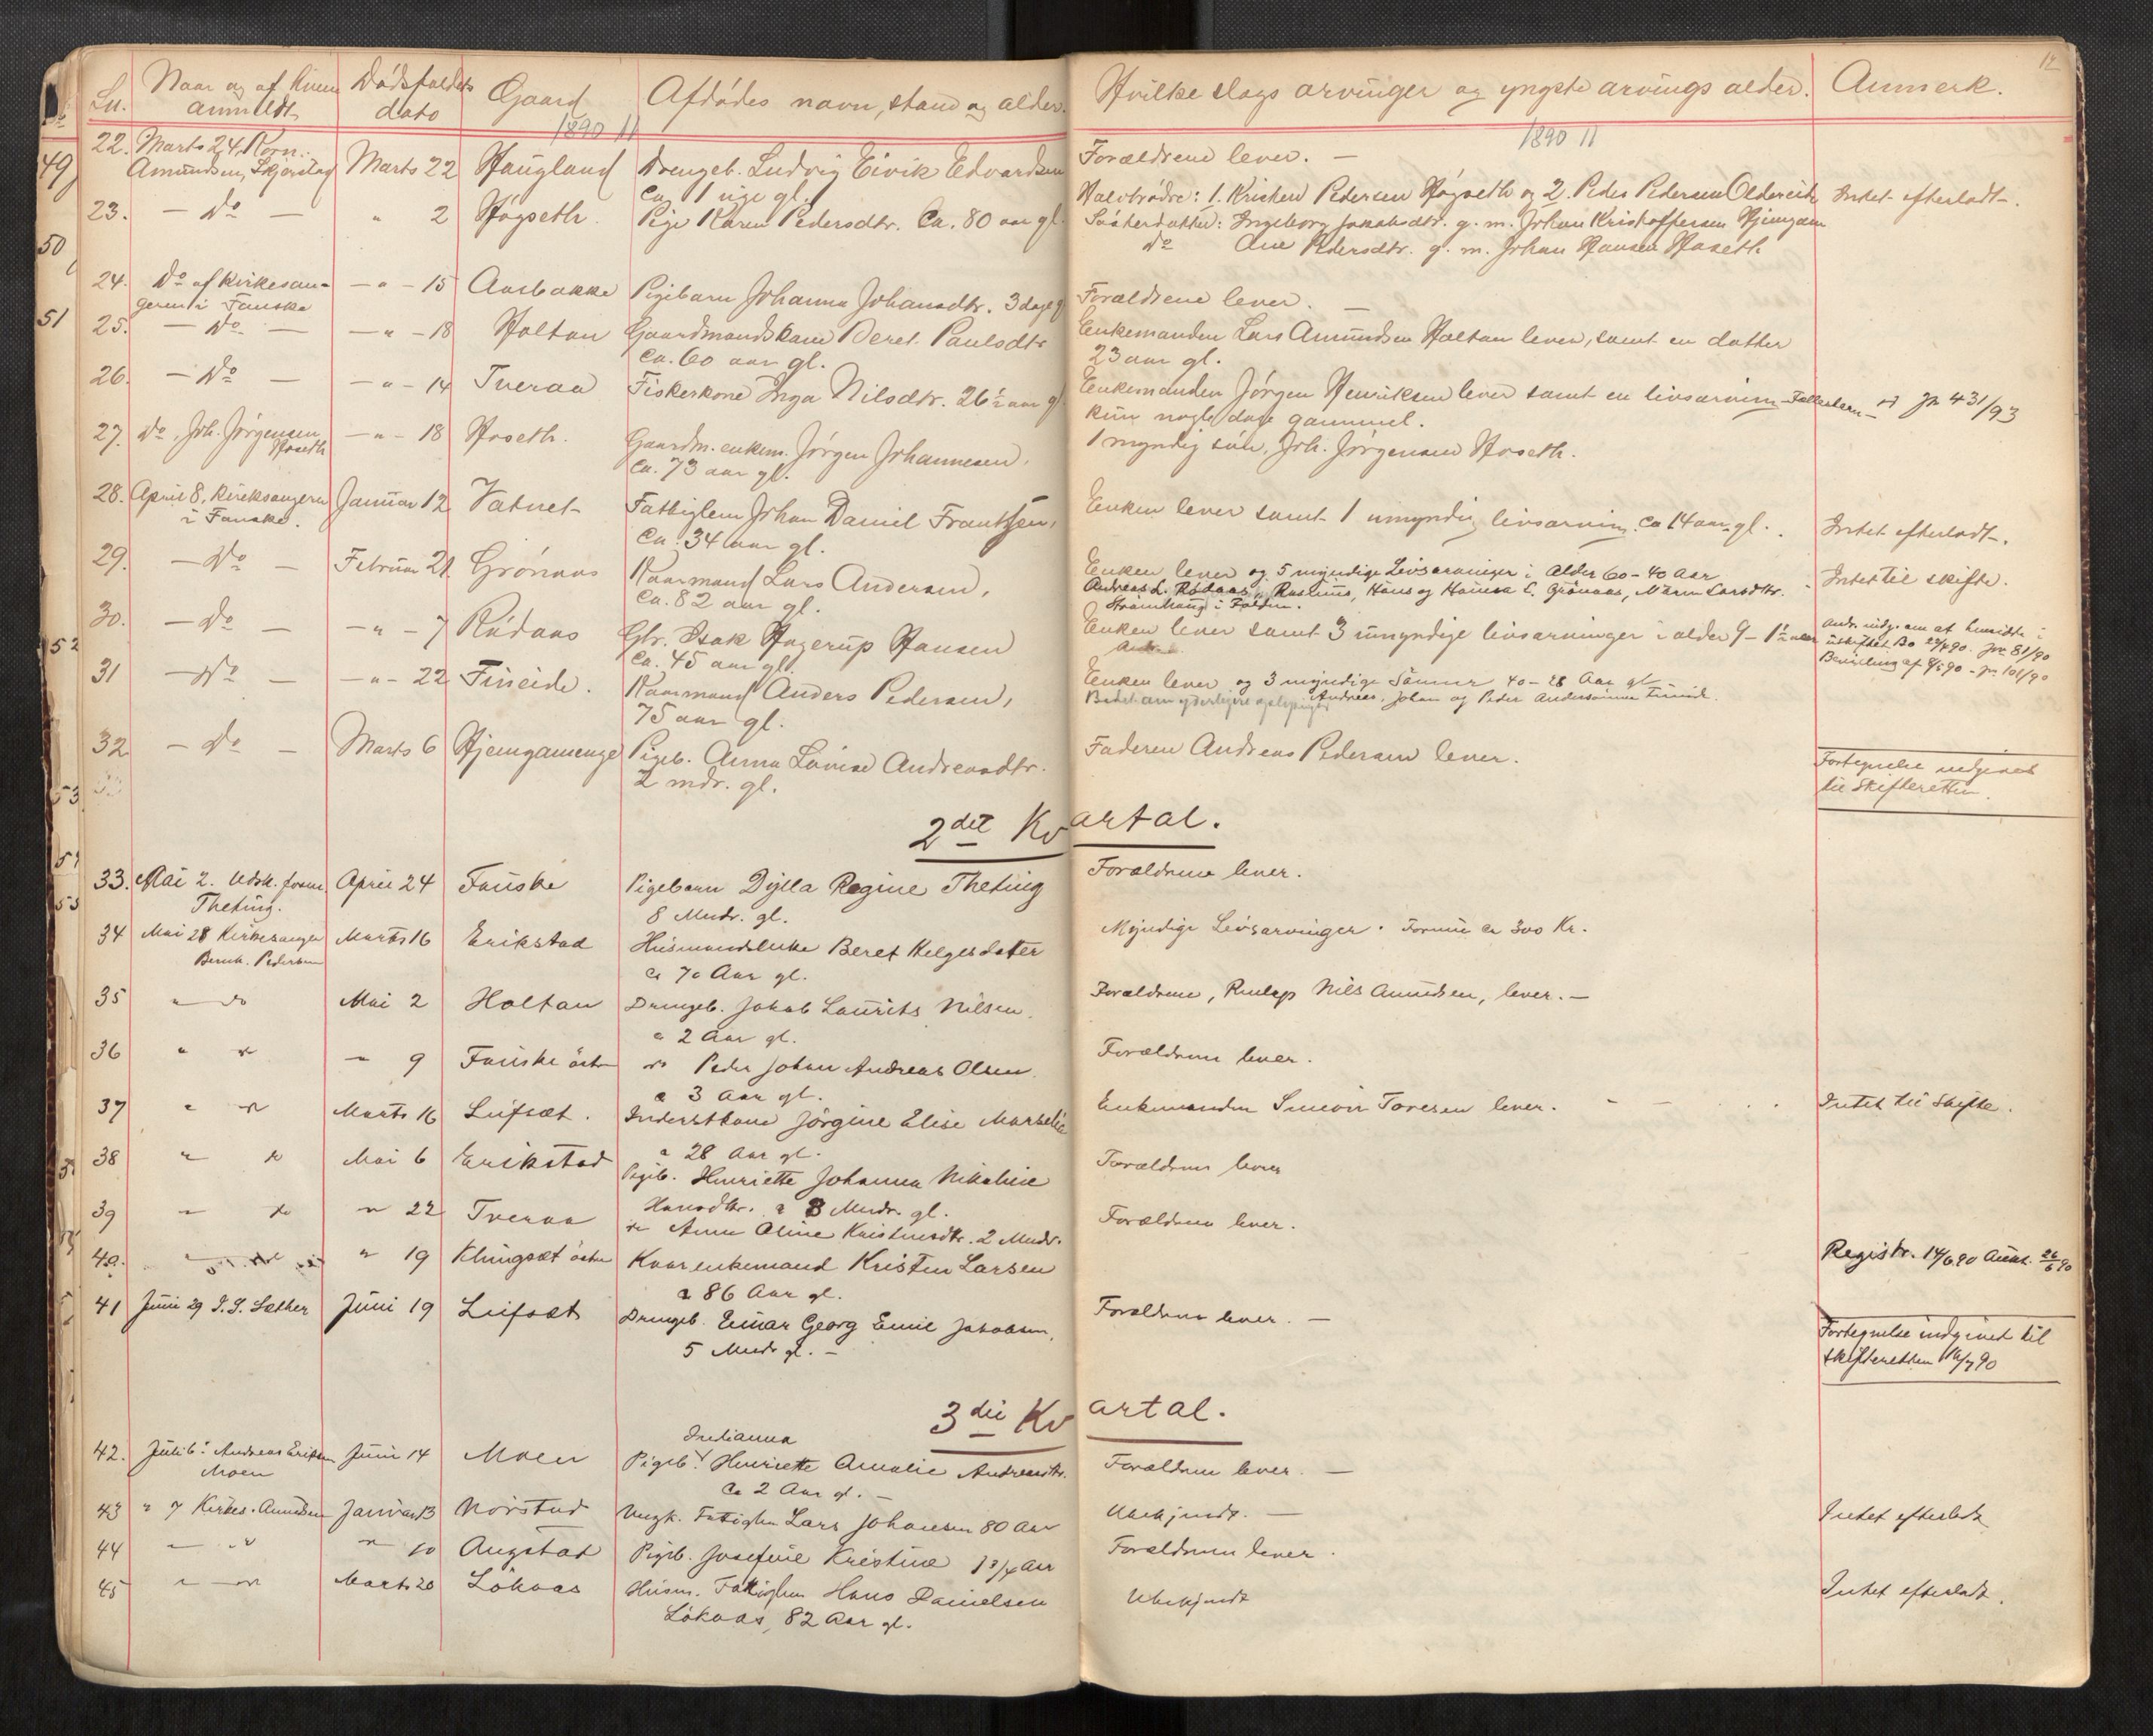 12
Ln. Naar og af hvem anmeldt Dødsfaldets dato Gaard Afdødes navn, stand og alder. Hvilke slags arvinger og yngste arvings alder. Anmerk.
1890 11 1890 11
22. Marts 24, Korn. Marts 22 Haugland Drengeb. Ludvig Eivik Edvardsen Forældrene lever. —
Amundsen, Skjerstad ca. 1 uge gl.
23. — Do — " 2 Høgseth Pige Karen Pedersdtr. Ca. 80 aar gl. Halvbrødre: 1. Kristen Pedersen Høgseth og 2. Peder Pedersen Oldereide Intet efterladt.
Søsterdøttre: Ingeborg Jakobsdtr. g. m. Johan Kristoffersen Hjemgam
Do Ane Pedersdtr. g. m. Johan Hansen Haseth
24. Do af kirkesan- — " — 15 Aasbakke Pigebarn Johanna Johansdtr. 3 dage gl Forældrene lever. —
geren i Fauske
25. — Do — — " — 18 Holtan Gaardmandskone Beret Paulsdtr Enkemanden Lars Amundsen Holtan lever, samt en datter
ca. 60 aar gl. 23 aar gl.
26. — Do — — " — 14 Tveraa Fiskerkone Inga Nilsdtr. 26 ½ aar gl. Enkemanden Jørgen Henriksen lever samt en livsarving Jr 431/93
kun nogle dage gammel.
27. Do, Joh. Jørgensen — " — 18 Hoseth. Gaardm. enkem. Jørgen Johannesen, 1 myndig søn, Joh. Jørgensen Hoseth.
Hoseth ca. 73 aar gl.
28. April 8, Kirkesangeren Januar 12 Vatnet Fattiglem Johan Daniel Frantzen, Enken lever samt 1 umyndig livsarving ca 14 aar gl. Intet efterladt.
i Fauske. Ca. 34 aar gl.
29. — Do — Februar 21 Grønaas Kaarmand Lars Andersen, Enken lever og 5 myndige Livsarvinger i Alder 60 - 40 Aar Intet til skifte.
Ca. 82 aar gl. Andreas L. Rødaas, Rasmus, Hans og Hanna L. Grønaas, Maren Larsdtr.
Strømhaug i Folden.
30. — Do — — " — 7 Rødaas Gbr. Isak Hagerup Hansen Enken lever samt 3 umyndige livsarvinger i alder 9 - 1½ aar Andr. indg. om at hensidde i
Ca. 45 aar gl. uskiftet Bo 22/4 90. Jr. 81/90
Bevilling af 8/5 90 - jr. 101/90
31 — Do — — " — 22 Fineide. Kaarmand Anders Pedersen, Enken lever og 3 myndige Sønner 40 - 28 Aar gl
75 aar gl. Andreas, Johan og Peder Anderssønner Fineide.
32 — Do — Marts 6 Hjemgamenge Pigeb. Anna Lovise Andreasdtr. Faderen Andreas Pedersen lever.
2 mdr. gl. Fortegnelse indgivet
til Skifteretten.
2det Kvartal.
33. Mai 2. Udsk. form. April 24 Fauske Pigebarn Dylla Regine Theting Forældrene lever.
Theting. 8 Mndr. gl.
34 Mai 28 Kirkesanger Marts 16 Erikstad Husmandsenke Beret Helgesdatter Myndige Livsarvinger. Formue ca 300 Kr.
Bernh. Pedersen ca 70 Aar gl.
35 " do Mai 2 Holtan Drengeb. Jakob Laurits Nilsen. Forældrene, Nils Amundsen, lever. —
ca 2 Aar gl.
36 " do " 9 Fauske östre do Peder Johan Andreas Olsen. Forældrene lever.
ca 3 Aar gl.
37 " do Marts 16 Leifset. Inderstkone Jörgine Elise Enkemanden Simon Toresen lever. - — . . Intet til Skifte.
ca 28 Aar gl.
38 " do Mai 6 Erikstad Pigeb. Henriette Johanna Nikoline Forældrene lever
Hansdtr. ca 8 Mndr. gl.
39 " do " 22 Tveraa do Anne Oline Kristensdtr. 2 Mndr. Forældrene lever.
40. " do " 19 Klungset östre Kaarenkemand Kristen Larsen Registr. 14/6 90 26/6 90
ca 86 Aar gl.
41 Juni 29 Sæther Juni 19 Leifset Drengeb. Einar Georg Emil Jakobsen, Forældrene lever. —
5 Mndr gl. — Fortegnelse indgivet til
skifteretten 16/7 90
3die Kvartal.
Indianna
42. Juli 6. Andreas Eriksen Juni 14 Moen Pigeb. Henriette Amalie Andreasdtr. Forældrene lever. —
Moen Ca 2 Aar gl. —
43 " 7 Kirkes. Amundsen Januar 13 Nörstad Ungk. Fattiglem Lars Johansen 80 Aar Ubekjendt. — Intet efterladt
44 — " " 10 Angstad Pigeb. Josefine Kristine 1 3/4 Aar Forældrene lever.
45 " — do Marts 20 Lökaas Husm. Fattiglem Hans Danielsen Ubekjendt Intet efterladt.
Lökaas, 82 Aar gl.